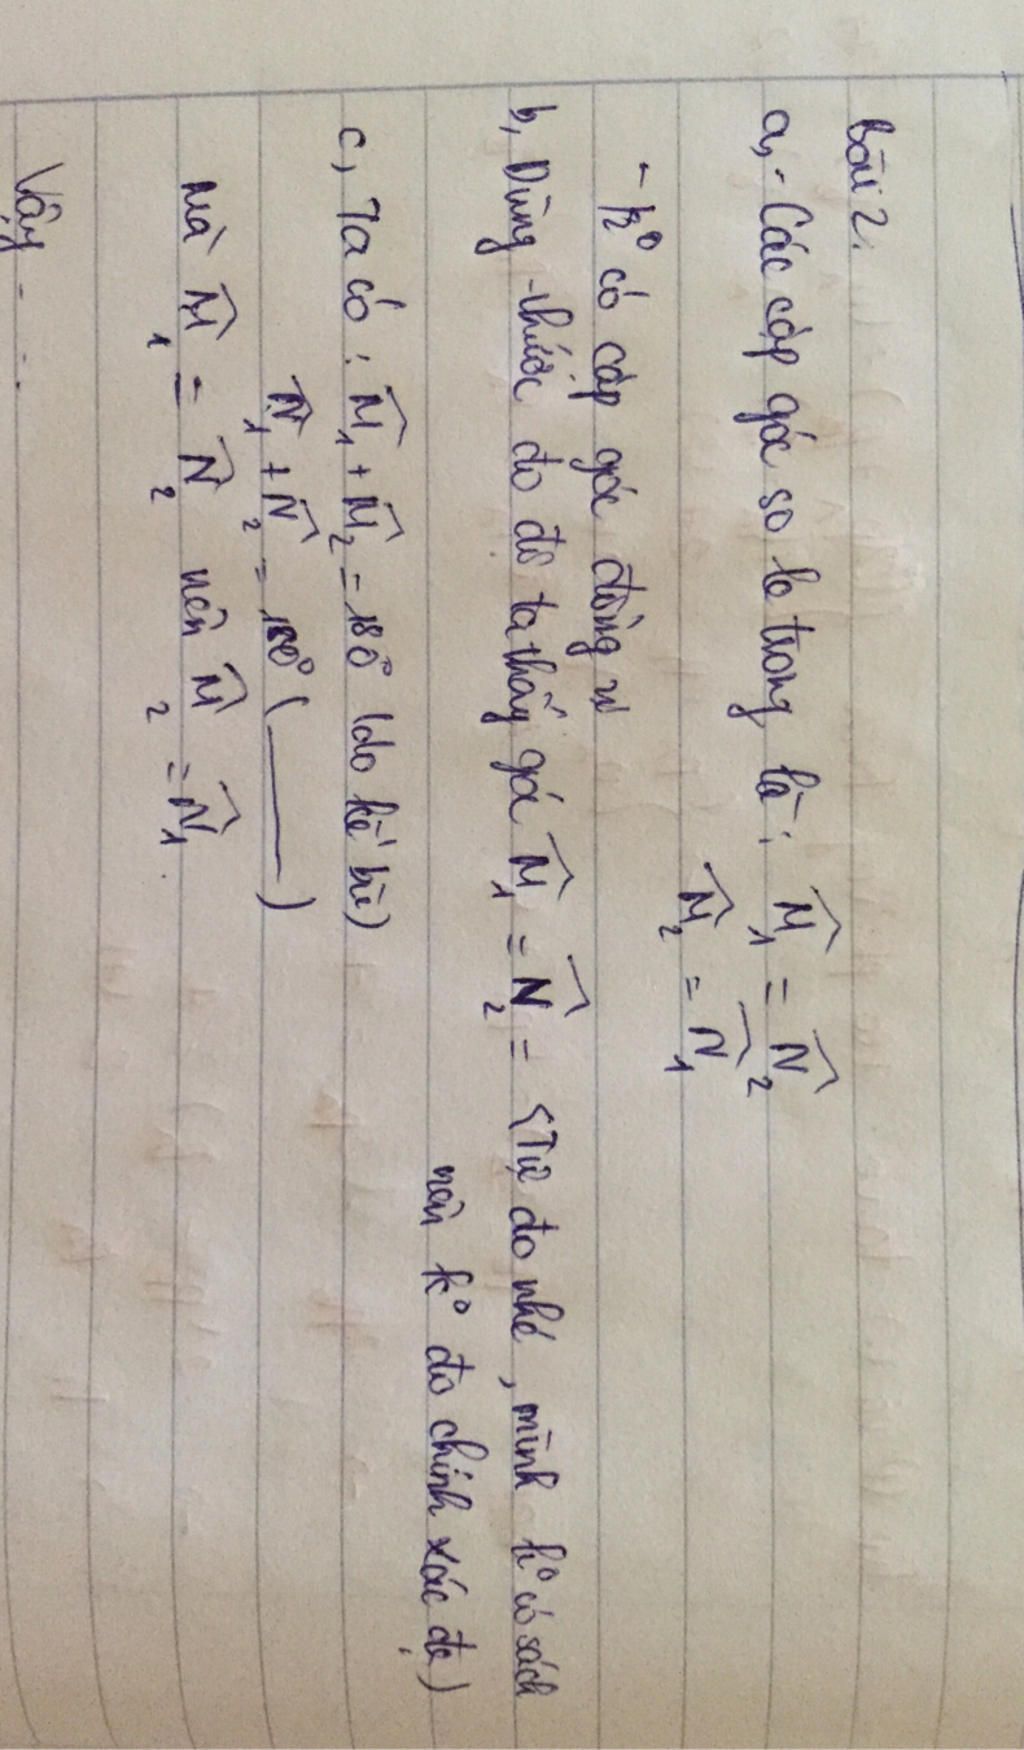 Bài 2.
a, - Các cặp góc so le trong là: M̂₁ = N̂₂
M̂₂ = N̂₁
- k° có cặp góc đồng vị
b, Dùng thước đo độ ta thấy góc M̂₁ = N̂₂ = (Tự đo nhé, mình k° có sách
nên k° đo chính xác đc)
c, Ta có: M̂₁ + M̂₂ = 180° (do kề bù)
N̂₁ + N̂₂ = 180° (———)
mà M̂₁ = N̂₂ nên M̂₂ = N̂₁
Vậy ...